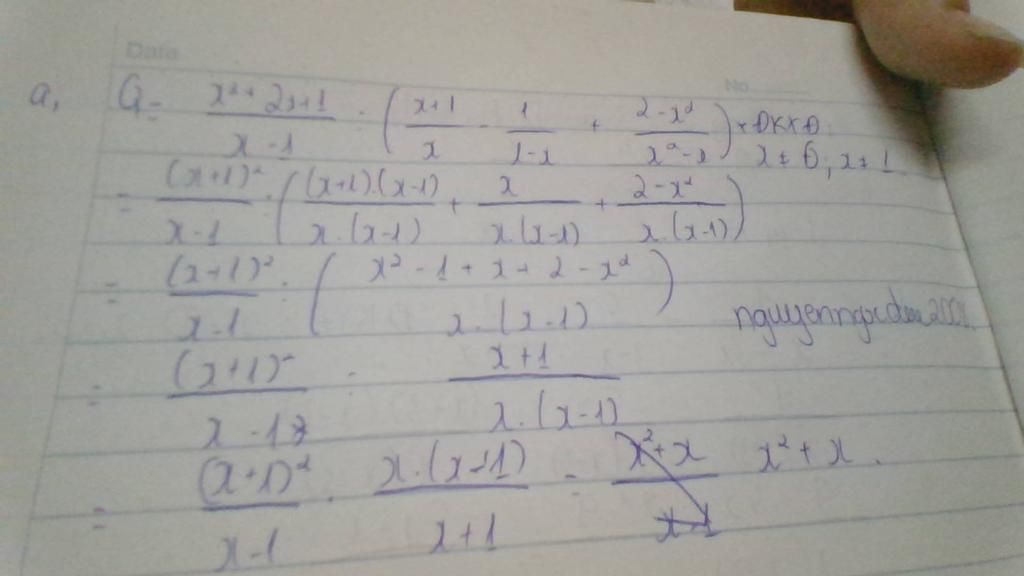 Date
No
a, Q = \frac{x²+2x+1}{x-1} : ( \frac{x+1}{x} - \frac{1}{1-x} + \frac{2-x²}{x²-x} ) * ĐKXĐ:
x ≠ 0, x ≠ 1
= \frac{(x+1)²}{x-1} : ( \frac{(x+1).(x-1)}{x.(x-1)} + \frac{x}{x.(x-1)} + \frac{2-x²}{x.(x-1)} )
= \frac{(x+1)²}{x-1} : ( \frac{x²-1+x+2-x²}{x.(x-1)} )
= \frac{(x+1)²}{x-1} : \frac{x+1}{x.(x-1)}
= \frac{(x+1)²}{x-1} . \frac{x.(x-1)}{x+1} = x²+x.